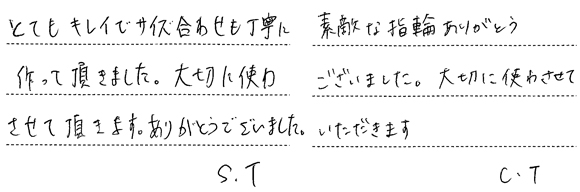 とてもキレイでサイズ合わせも丁寧に
作って頂きました。大切に使わ
させて頂きます。ありがとうでざいました。
S.T
素敵な指輪ありがとう
ございました。大切に使わさせて
いただきます
C.T